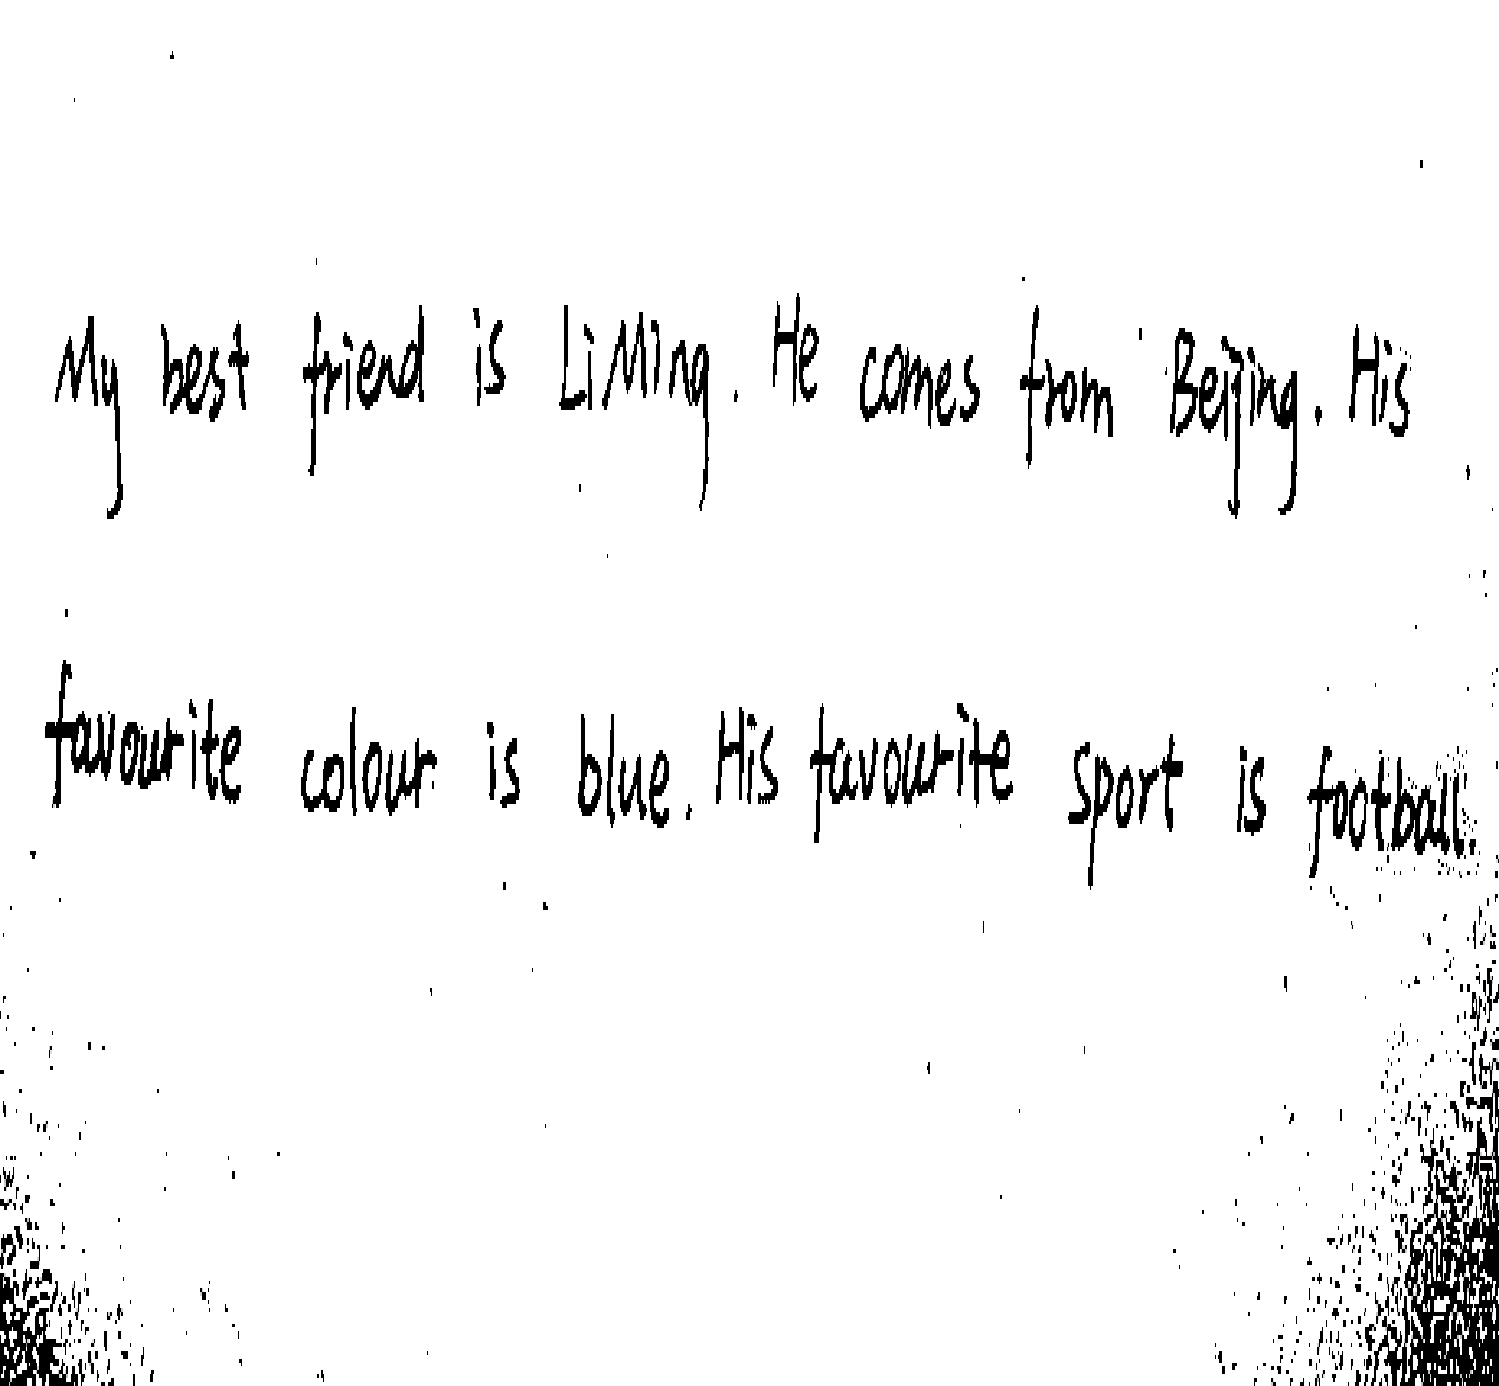 My best friend is Li Ming. He comes from Beijing. His
favourite colour is blue. His favourite sport is football.